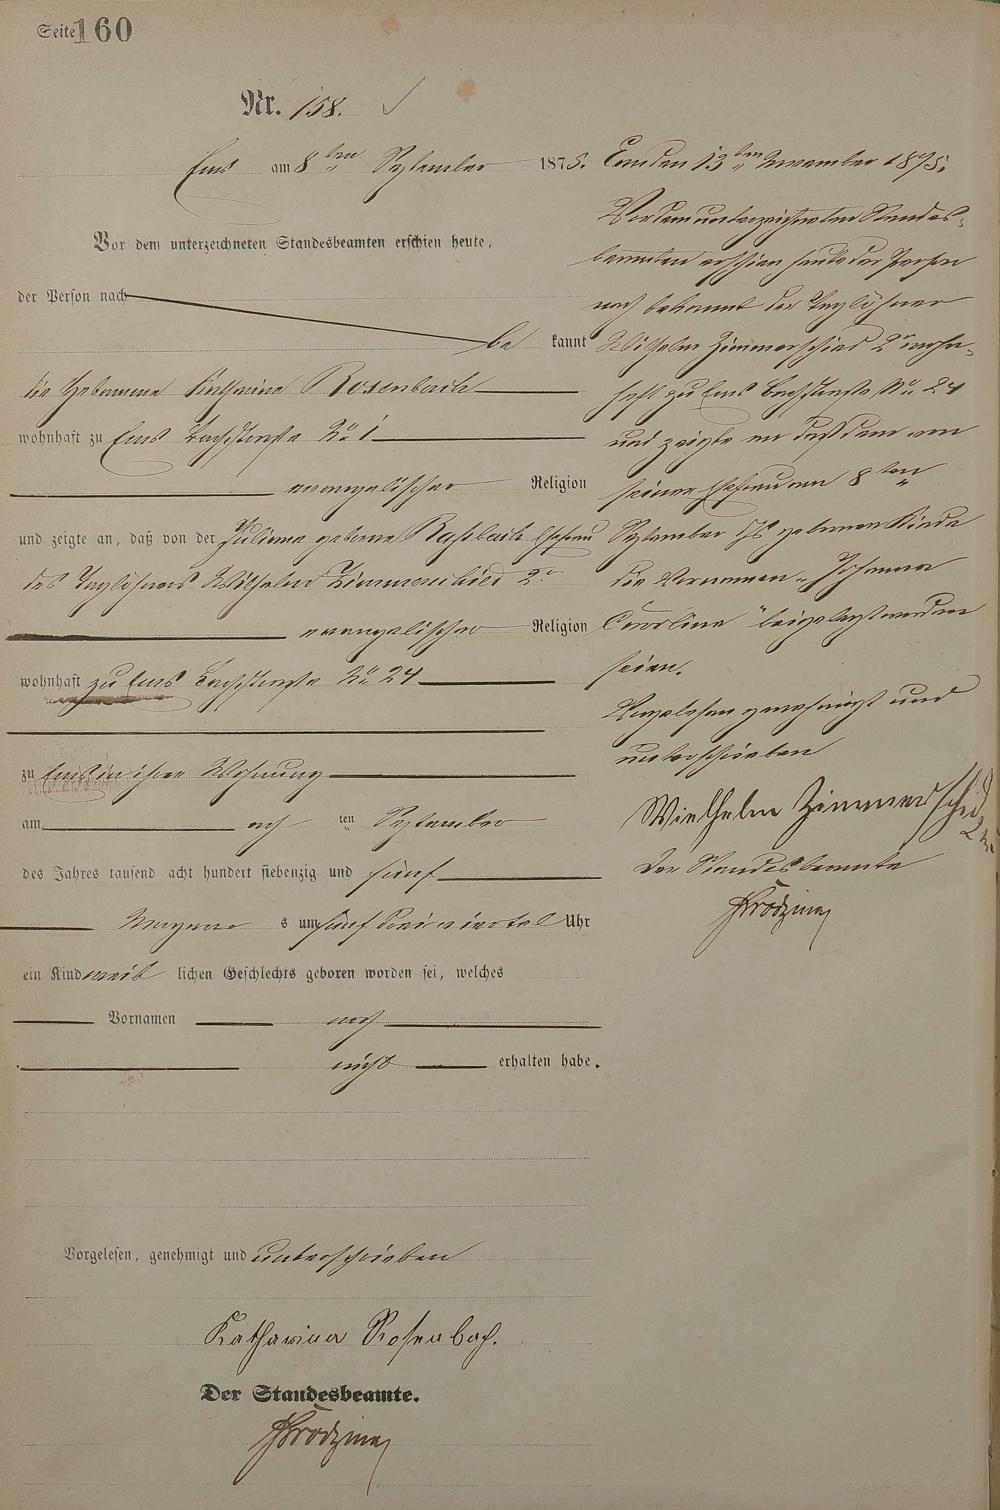 Seite 160
Nr. 158.
Ems am 8ten September 1875.
Vor dem unterzeichneten Standesbeamten erschien heute,
der Person nach
be kannt
die Hebamme Katharina Rosenbach
wohnhaft zu Ems Bachstraße No 1
evangelischer Religion
und zeigte an, daß von der Juliana geborne Ehefrau
des Taglöhners Wilhelm Zimmerschied 2r
evangelischer Religion
wohnhaft zu Ems Bachstraße No 24
zu Ems in ihrer Wohnung
am acht ten September
des Jahres tausend acht hundert siebenzig und fünf
Morgens um fünf drei viertel Uhr
ein Kind weib lichen Geschlechts geboren worden sei, welches
Vornamen noch
nicht erhalten habe.
Vorgelesen, genehmigt und unterschrieben
Katharina Rosenbach.
Der Standesbeamte.
Ems den 13ten November 1875.
Vor dem unterzeichneten Standes-
beamten erschien heute der Person
nach bekannt der Taglöhner
Wilhelm Zimmerschied 2r wohn-
haft zu Ems Bachstraße No 24
und zeigte an daß dem von
seiner Ehefrau am 8ten
September geborenen Kinde
die Vornamen „Johanna
Caroline" beigelegt worden
seien.
Vorgelesen genehmigt und
unterschrieben
Wielhelm Zimmerschied 2r.
Der Standesbeamte